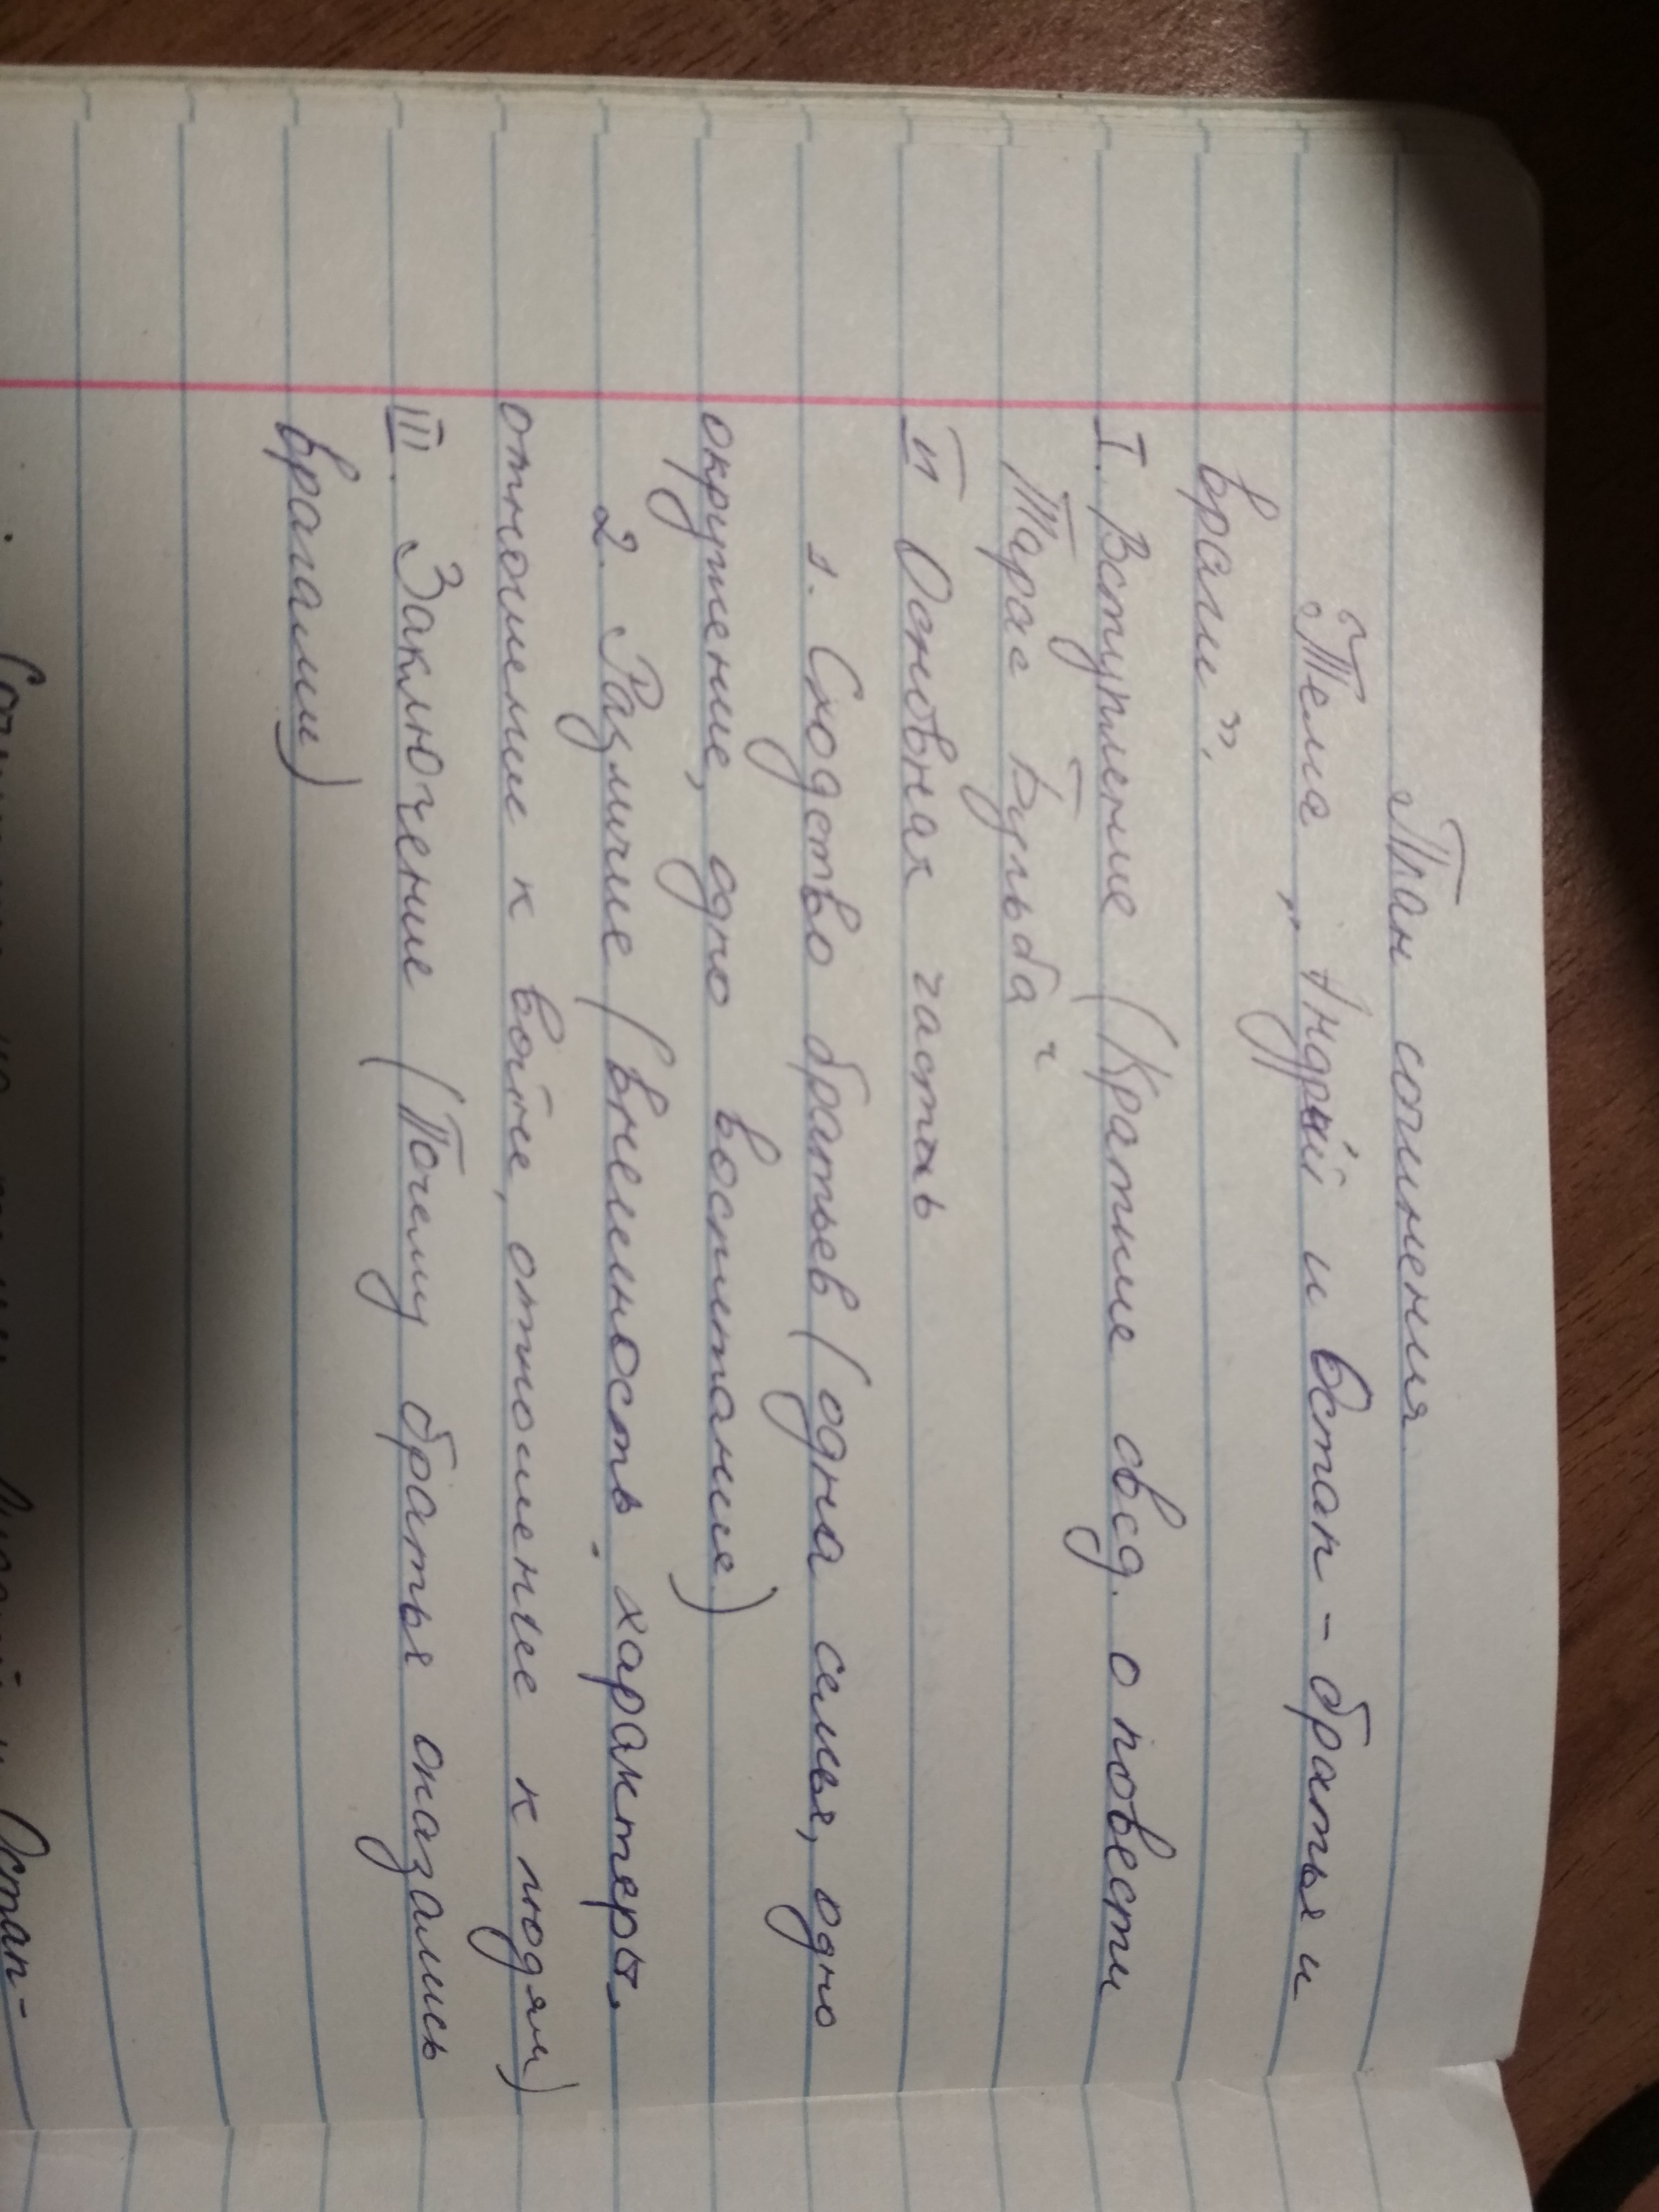 План сочинения
"Тема „Андрий и Остап - братья и
враги".
I. Вступление (Краткие свед. о повести
Тарас Бульба"
II Основная часть
1. Сходство братьев (одна семья, одно
окружение, одно воспитание)
2. Различие (внешность, характеры,
отношение к войне, отношение к людям)
III. Заключение (Почему братья оказались
врагами)
Остап-